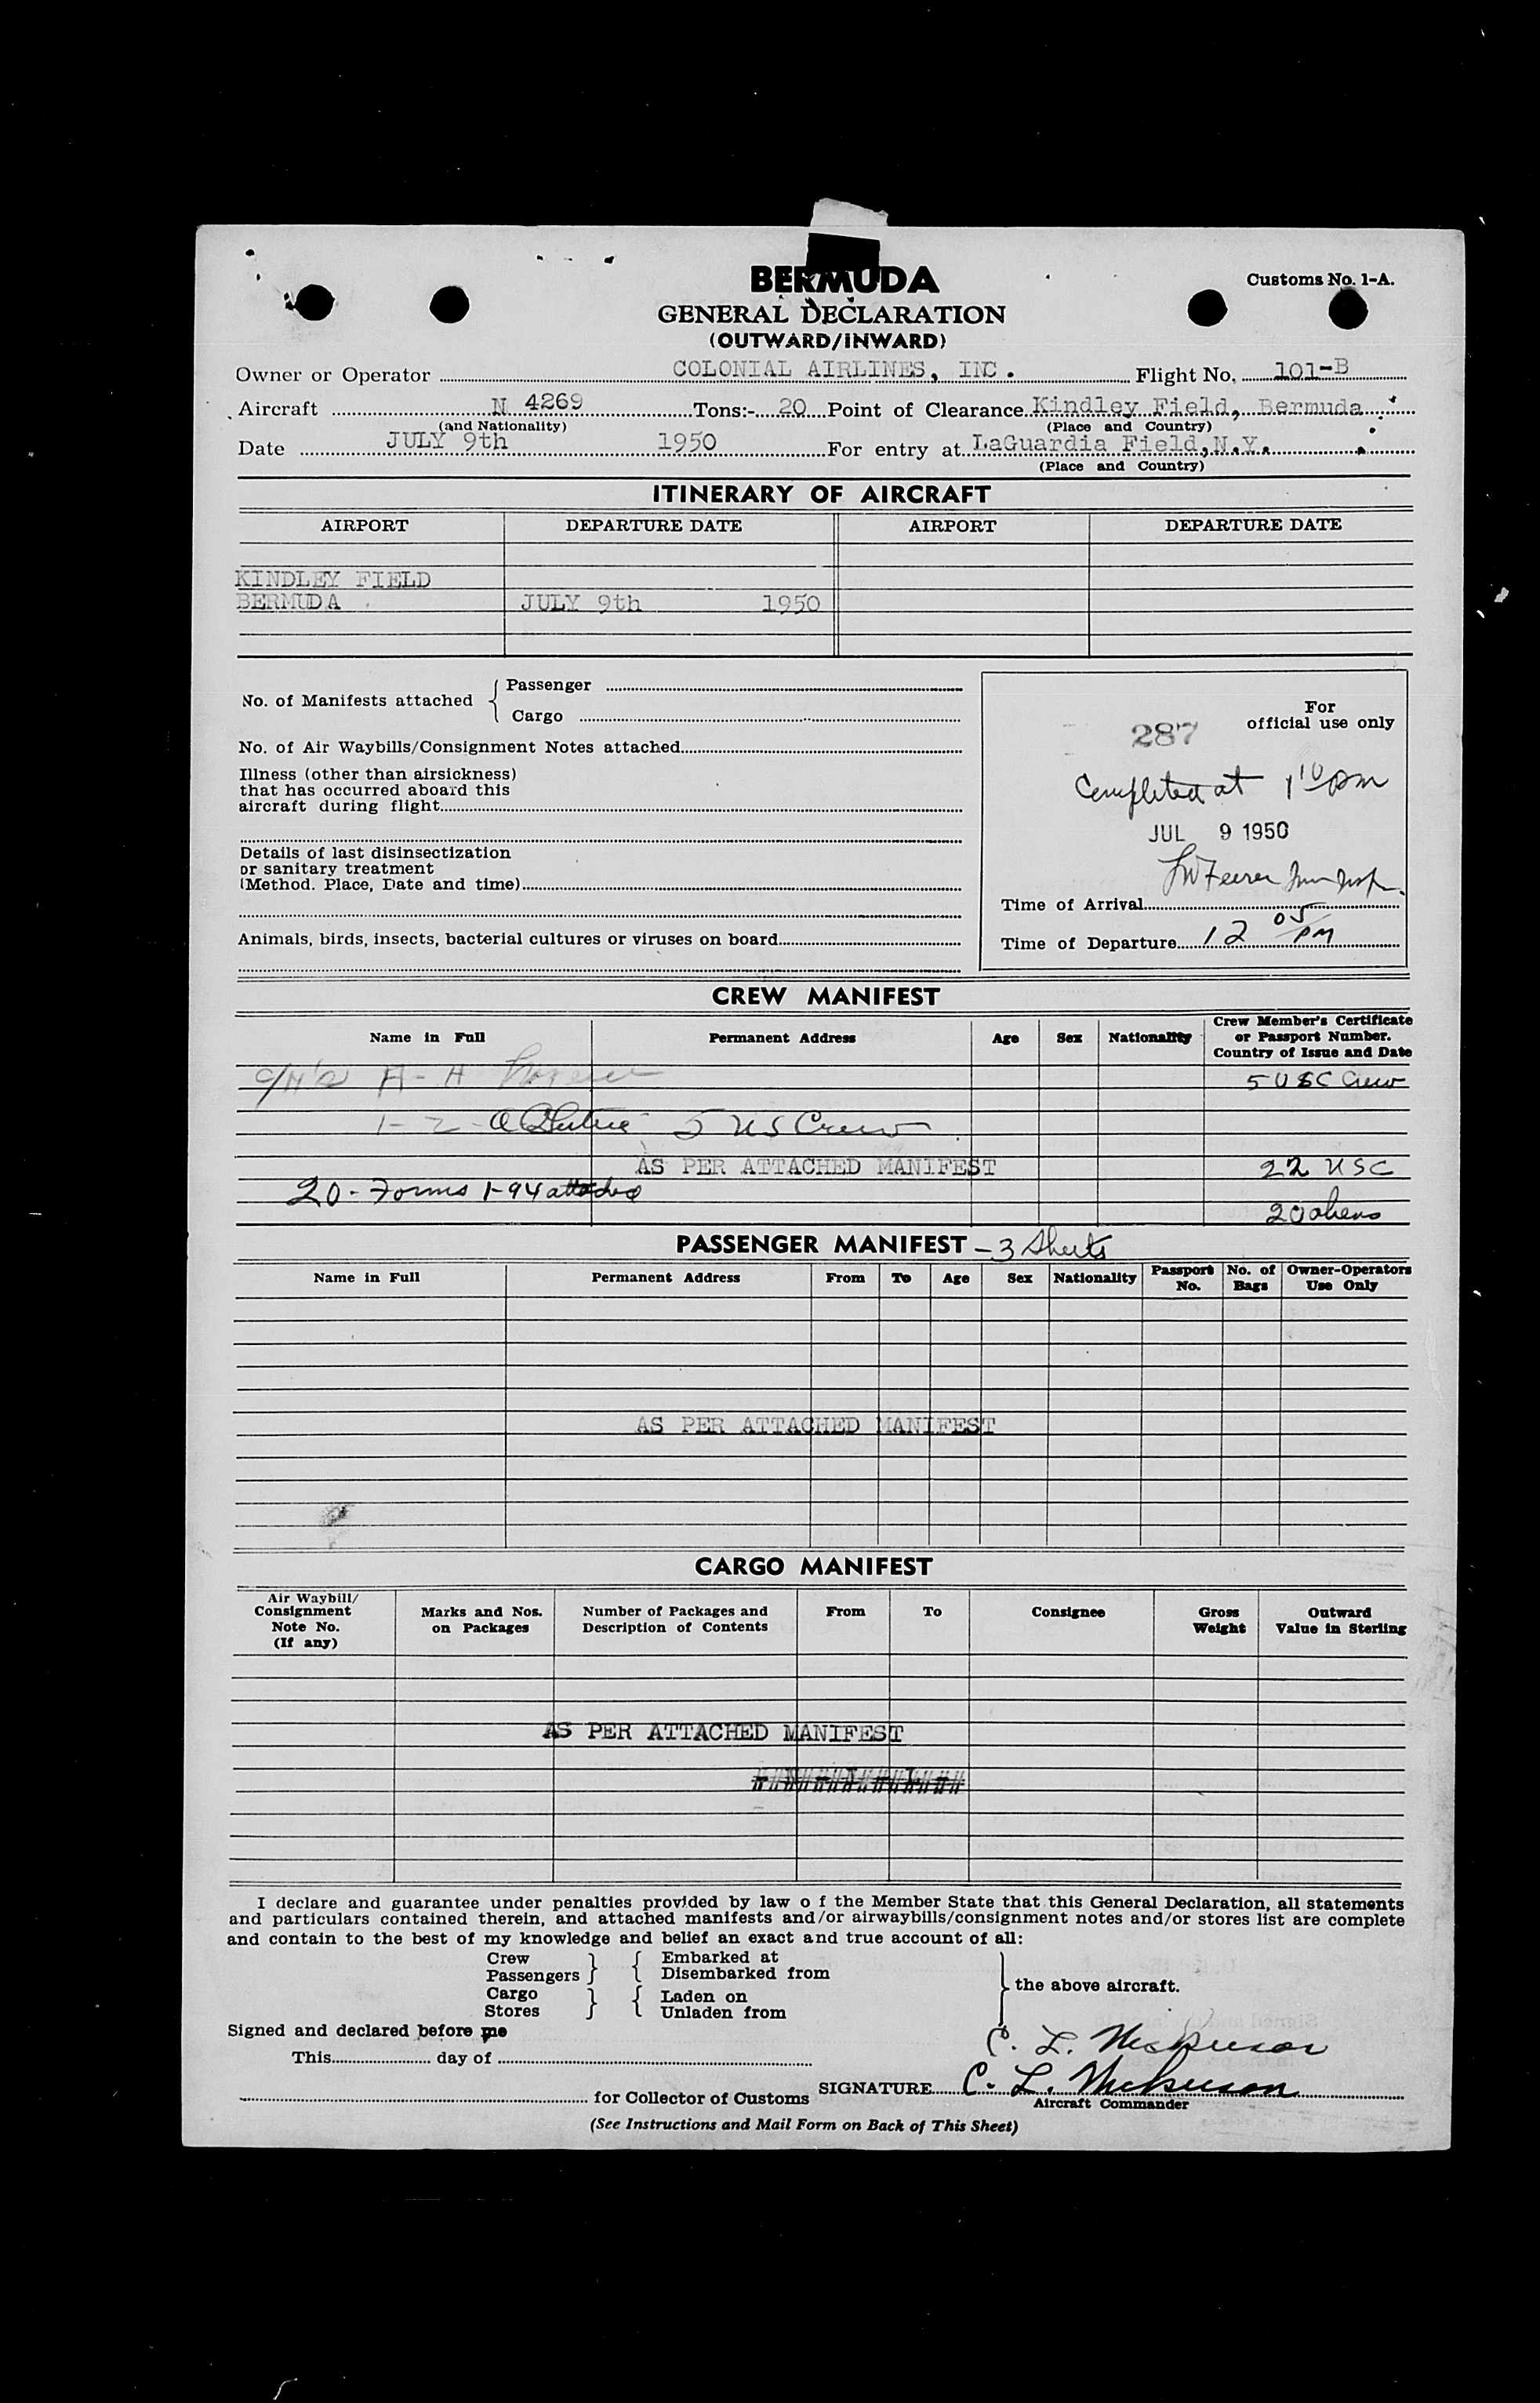 BERMUDA
Customs No. 1-A.
GENERAL DECLARATION
(OUTWARD/INWARD)
Owner or Operator COLONIAL AIRLINES, INC. Flight No. 101-B
Aircraft N 4269 Tons:- 20 Point of Clearance Kindley Field, Bermuda
(and Nationality) (Place and Country)
Date JULY 9th 1950 For entry at LaGuardia Field, N.Y.
(Place and Country)
ITINERARY OF AIRCRAFT
AIRPORT DEPARTURE DATE AIRPORT DEPARTURE DATE
KINDLEY FIELD
BERMUDA JULY 9th 1950
No. of Manifests attached { Passenger
Cargo
No. of Air Waybills/Consignment Notes attached
Illness (other than airsickness)
that has occurred aboard this
aircraft during flight
Details of last disinsectization
or sanitary treatment
(Method. Place, Date and time)
Animals, birds, insects, bacterial cultures or viruses on board
For
official use only
287
Completed at 1 10 pm
JUL 9 1950
Time of Arrival
Time of Departure 12 05 PM
CREW MANIFEST
Name in Full Permanent Address Age Sex Nationality Crew Member's Certificate
or Passport Number.
Country of Issue and Date
5 USC Crew
5 US Crew
AS PER ATTACHED MANIFEST 22 USC
20 - Forms 1-94 attached
20 aliens
PASSENGER MANIFEST - 3 Sheets
Name in Full Permanent Address From To Age Sex Nationality Passport No. No. of Bags Owner-Operators Use Only
AS PER ATTACHED MANIFEST
CARGO MANIFEST
Air Waybill/
Consignment
Note No.
(If any)
Marks and Nos.
on Packages
Number of Packages and
Description of Contents
From To Consignee Gross Weight
Outward
Value in Sterling
AS PER ATTACHED MANIFEST
I declare and guarantee under penalties provided by law o f the Member State that this General Declaration, all statements
and particulars contained therein, and attached manifests and/or airwaybills/consignment notes and/or stores list are complete
and contain to the best of my knowledge and belief an exact and true account of all:
Crew Embarked at
Passengers Disembarked from
Cargo Laden on the above aircraft.
Stores Unladen from
Signed and declared before me
This day of
C. L. Nickerson
for Collector of Customs SIGNATURE C. L. Nickerson
Aircraft Commander
(See Instructions and Mail Form on Back of This Sheet)